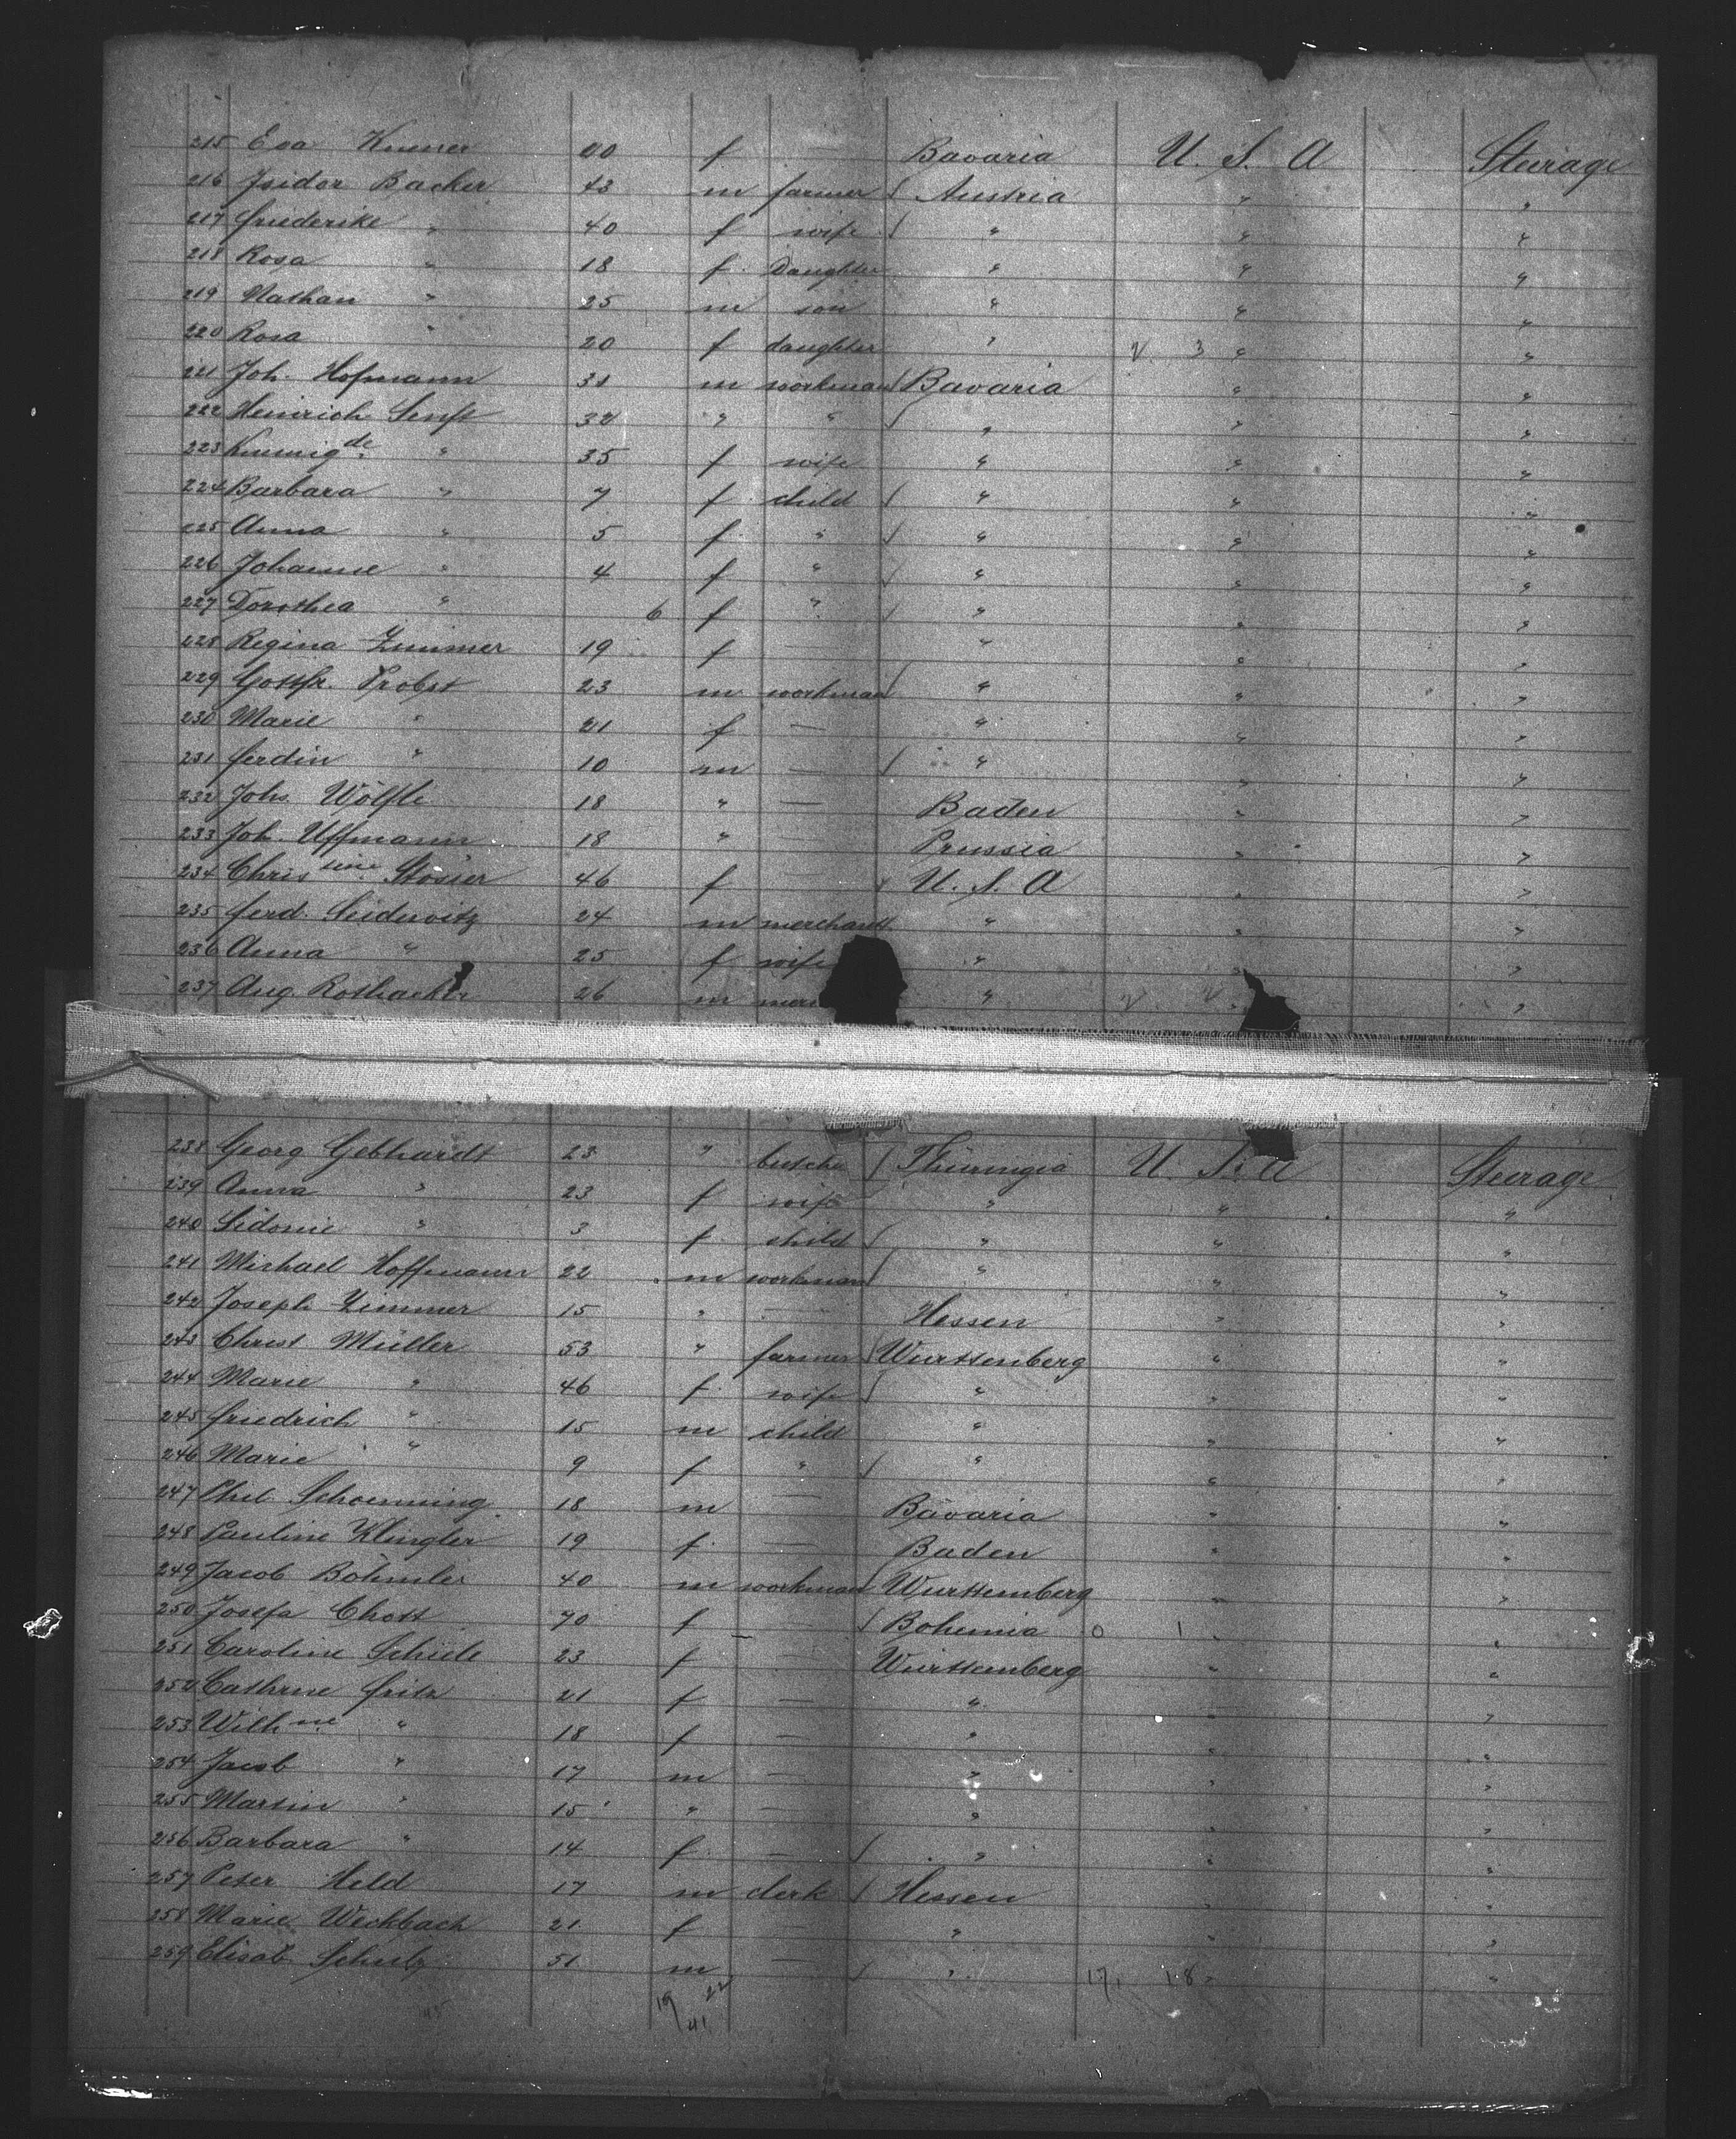 215 Eva Kumer 40 f — Bavaria U. S. A Steerage
216 Isidor Backer 43 m farmer Austria " "
217 Friederike " 40 f wife " " "
218 Rosa " 18 f. Daughter " " "
219 Nathan " 25 m son " " "
220 Rosa " 20 f daughter " 3 " "
221 Joh. Hofmann 31 m workman Bavaria " "
222 Heinrich Senft 32 " " " " "
223 Kunnigde " 35 f wife " " "
224 Barbara " 7 f child " " "
225 Anna " 5 f. " " " "
226 Johanne " 4 f " " " "
227 Dorothea " 6 f " " " "
228 Regina Zimmer 19 f — " " "
229 Gottfr. Probst 23 m workman " " "
230 Marie " 21 f — " " "
231 Ferdin " 10 m — " " "
232 Johs Wölfle 18 " — Baden " "
233 Joh. Uffmann 18 " — Prussia " "
234 Christine Stösier 46 f — U. S. A " "
235 Ferd. Seidewitz 24 m merchant " " "
236 Anna " 25 f wife " " "
237 Aug. Rothacker 26 m mer " " "
238 Georg Gebhardt 23 " butcher Thüringia U. S. A Steerage
239 Anna " 23 f wife " " "
240 Sidonie " 3 f child " " "
241 Michael Hoffmann 22 m workman " " "
242 Joseph Zimmer 15 " — Hessen " "
243 Christ Müller 53 " farmer Wurttenberg " "
244 Marie " 46 f. wife " " "
245 Friedrich " 15 m child " " "
246 Marie " 9 f " " " "
247 Phil. Schoenning 18 m — Bavaria " "
248 Pauline Klingler 19 f. — Baden " "
249 Jacob Böhmler 40 m workman Wurttemberg " "
250 Josefa Chott 70 f — Bohemia 0 1 " "
251 Caroline Schiele 23 f — Wurttemberg " "
252 Cathrine Fritz 21 f — " " "
253 Wilhne " 18 f — " " "
254 Jacob " 17 m — " " "
255 Martin " 15 " — " " "
256 Barbara " 14 f. — " " "
257 Peter Held 17 m clerk Hessen " "
258 Marie Weckbach 21 f — " " "
259 Elisab. Schulz 51 m — " 17 18 " "
19 22
41